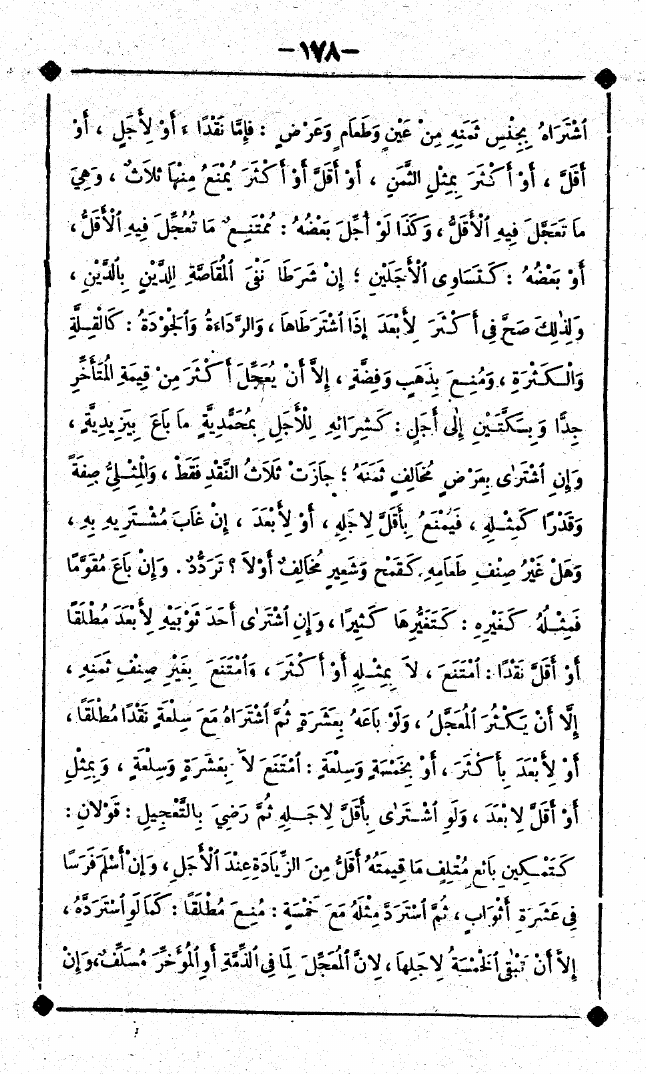 -١٧٨-
اشْتَرَاهُ بِجِنْسِ ثَمَنِهِ مِنْ عَيْنٍ وَطَعَامٍ وَعَرْضٍ : فَإِمَّا نَقْدًا ، أَوْ لِأَجَلٍ ، أَوْ
أَقَلَّ ، أَوْ أَكْثَرَ بِمِثْلِ الثَّمَنِ ، أَوْ أَقَلَّ أَوْ أَكْثَرَ يُمْنَعُ مِنْهَا ثَلَاثٌ ، وَهِيَ
مَا تَعَجَّلَ فِيهِ الْأَقَلُّ ، وَكَذَا لَوْ أُجِّلَ بَعْضُهُ : مُمْتَنِعٌ مَا تُعُجِّلَ فِيهِ الْأَقَلُّ ،
أَوْ بَعْضُهُ : كَتَسَاوِى الْأَجَلَيْنِ ؛ إِنْ شَرَطَا نَفْىَ الْمُقَاصَّةِ لِلدَّيْنِ بِالدَّيْنِ ،
وَلِذٰلِكَ صَحَّ فِى أَكْثَرَ لِأَبْعَدَ إِذَا اشْتَرَطَاهَا ، وَالرَّدَاءَةُ وَالْجَوْدَةُ : كَالْقِلَّةِ
وَالْكَثْرَةِ ، وَمُنِعَ بِذَهَبٍ وَفِضَّةٍ ، إِلاَّ أَنْ يُعَجَّلَ أَكْثَرَ مِنْ قِيمَةِ الْمُتَأَخِّرِ
جِدًّا وَبِسِكَّتَيْنِ إِلٰى أَجَلٍ : كَشِرَائِهِ لِلْأَجَلِ بِمُحَمَّدِيَّةٍ مَا بَاعَ بِيَزِيدِيَّةٍ ،
وَإِنِ اشْتَرٰى بِعَرْضٍ مُخَالِفٍ ثَمَنَهُ ؛ جَازَتْ ثَلَاثُ النَّقْدِ فَقَطْ ، وَالْمِثْلِىُّ صِفَةً
وَقَدْرًا كَمِثْلِهِ ، فَيُمْنَعُ بِأَقَلَّ لِأَجَلِهِ ، أَوْ لِأَبْعَدَ ، إِنْ غَابَ مُشْتَرِيهِ بِهِ ،
وَهَلْ غَيْرُ صِنْفِ طَعَامِهِ كَقَمْحٍ وَشَعِيرٍ مُخَالِفٌ أَوْلاَ ؟ تَرَدُّدٌ . وَإِنْ بَاعَ مُقَوَّمًا
فَمِثْلُهُ كَغَيْرِهِ : كَتَغَيُّرِهَا كَثِيرًا ، وَإِنِ اشْتَرٰى أَحَدَ ثَوْبَيْهِ لِأَبْعَدَ مُطْلَقًا
أَوْ أَقَلَّ نَقْدًا : امْتَنَعَ ، لاَ بِمِثْلِهِ أَوْ أَكْثَرَ ، وَامْتَنَعَ بِغَيْرِ صِنْفِ ثَمَنِهِ ،
إِلَّا أَنْ يَكْثُرَ الْمُعَجَّلُ ، وَلَوْ بَاعَهُ بِعَشَرَةٍ ثُمَّ اشْتَرَاهُ مَعَ سِلْعَةٍ نَقْدًا مُطْلَقًا ،
أَوْ لِأَبْعَدَ بِأَكْثَرَ ، أَوْ بِخَمْسَةٍ وَسِلْعَةٍ : امْتَنَعَ لاَ بِعَشَرَةٍ وَسِلْعَةٍ ، وَبِمِثْلِ
أَوْ أَقَلَّ لِابْعَدَ ، وَلَوِ اشْتَرٰى بِأَقَلَّ لِاجَلِهِ ثُمَّ رَضِىَ بِالتَّعْجِيلِ : قَوْلَانِ :
كَتَمْكِينِ بَائِعٍ مُتْلِفٍ مَا قِيمَتُهُ أَقَلُّ مِنَ الزِّيَادَةِ عِنْدَ الْأَجَلِ ، وَإِنْ أَسْلَمَ فَرَسًا
فِى عَشَرَةِ أَثْوَابٍ ، ثُمَّ اسْتَرَدَّ مِثْلَهُ مَعَ خَمْسَةٍ : مُنِعَ مُطْلَقًا : كَمَا لَوِ اسْتَرَدَّهُ ،
إِلاَّ أَنْ تَبْقٰى الْخَمْسَةُ لِاجَلِهَا ، لِانَّ الْمُعَجِّلَ لِمَا فِى الذِّمَّةِ أَوِ الْمُؤَخِّرَ مُسَلِّفٌ ، وَإِنْ